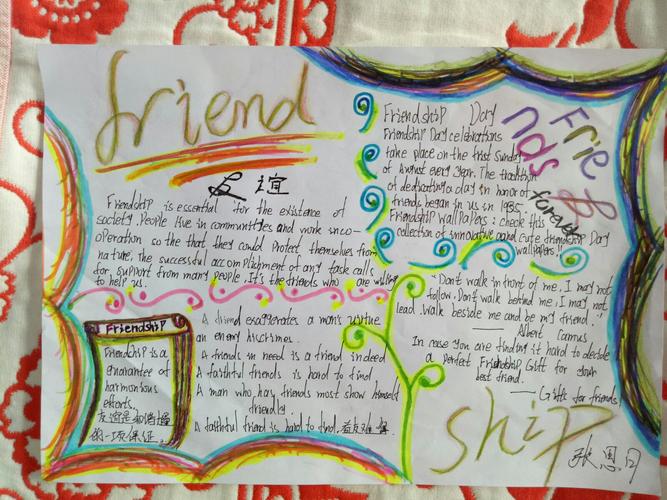 friend
友谊
Friendship is essential for the existence of
society. People live in communities and work inco-
operation so the that they could protect themselves from
nature, the successful accomplishment of any task calls
for support from many people. It's the friends who are willing
to help us.
Friendship
Friendship is a
guarantee of
harmonious
efforts.
友谊是和谐
的一项保证。
A friend exaggerates a man's virtue
an enemy his crimes.
A friends in need is a friend indeed
A faithful friends is hard to find
A man who hay friends most show himself
friendly.
A faithful friend is hard to find. 益友难
Friendship Day
Friendship Day celebrations
take place on the frist Sunday
of August every year. The tradition
of dedicating a day in honor of
friends began in us in 1935.
Friendship wallpapers: check this
collection of innovative and cute friendship Day
wallpapers!!
Frie
nds
forever
"Don't walk in front of me. I may not
follow. Don't walk behind me. I may not
lead. Walk beside me and be my friend."
—— Albert Camus
In case you are finding it hard to decide
a perfect Friendship Gift for your
best friend.
—— Gifts for friends!
ship
张恩